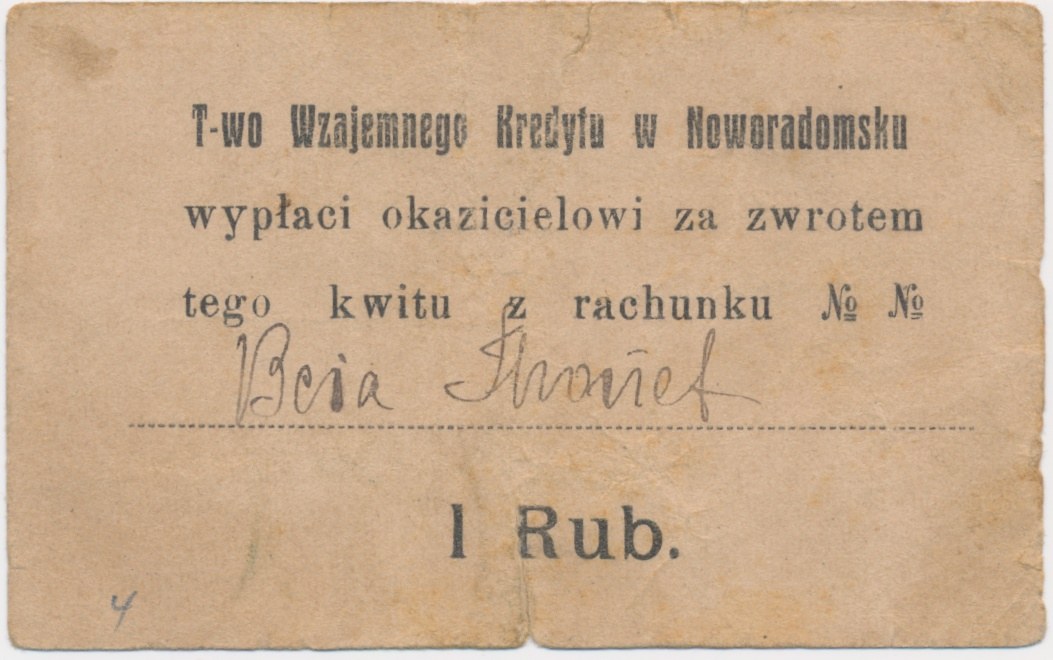 T-wo Wzajemnego Kredytu w Noworadomsku
wypłaci okazicielowi za zwrotem
tego kwitu z rachunku № №
1 Rub.
4